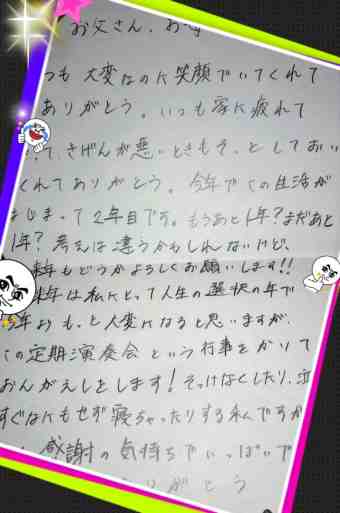 お父さん、お
つも大変なのに笑顔でいてくれて
ありがとう。いつも家に疲れて
って、きげんが悪いときもそっとしておい
くれてありがとう。今年でこの生活が
はじまって2年目です。もうあと1年?まだあと
1年?考えは違うかもしれないけど、
来年もどうかよろしくお願いします!!
来年は私にとって人生の選択の年で
今年よりもっと大変になると思いますが、
この定期演奏会という行事をかりて
おんがえしをします!そっけなくしたり、泣
すぐなにもせず寝ちゃったりする私ですが
感謝の気持ちでいっぱいで
ありがとう